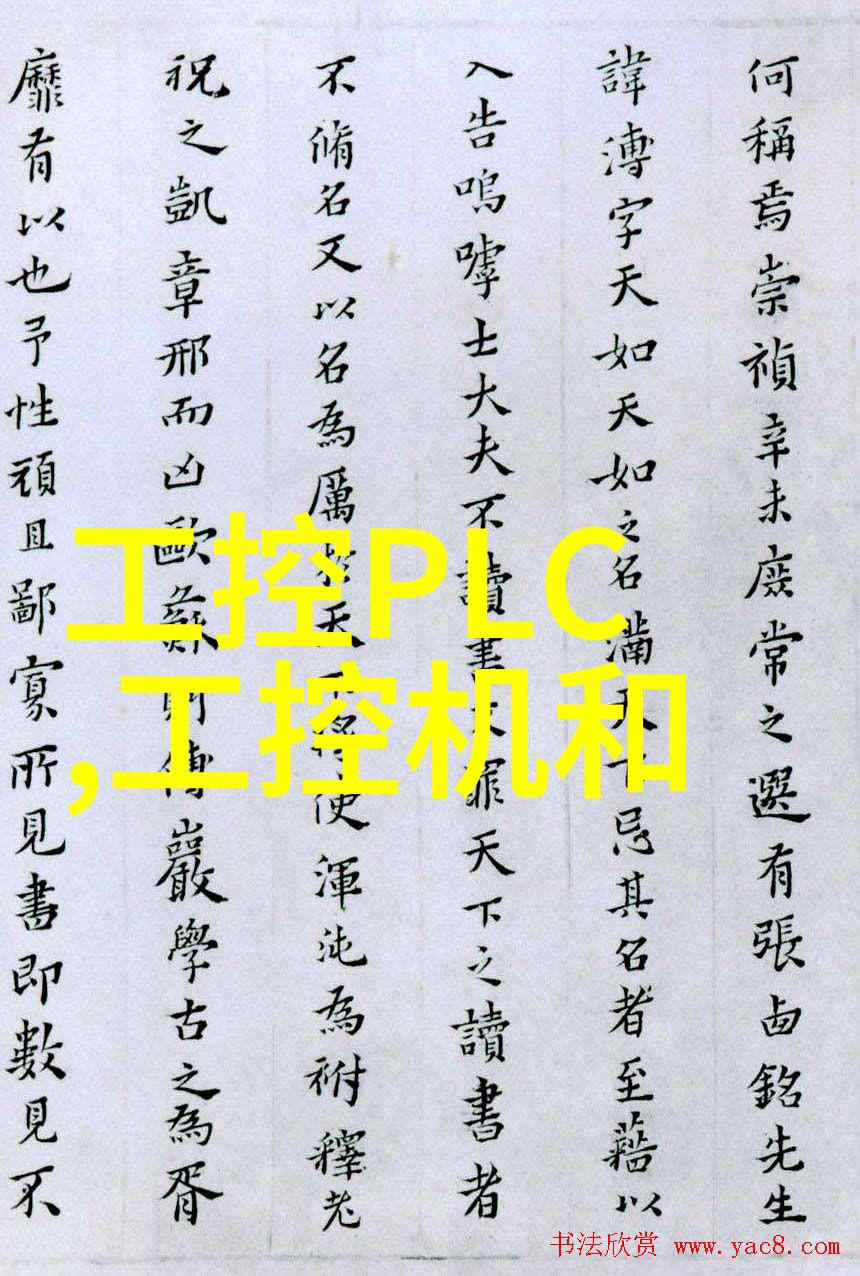 何稱焉崇禎辛未庶常之選有張卣銘先生
諱溥字天如天如之名滿天下忌其名者至藉以
入告嗚嘑士大夫不讀書
罪天下之讀書者
不脩名又以名為厲於天下將使渾沌為祔釋老
祝之凱章邢而凶歐蘇則傳巖學古之為胥
靡有以也予性頑且鄙寡所見書即數見不
工控PLC
,工控机和
书法欣赏 www.yac8.com